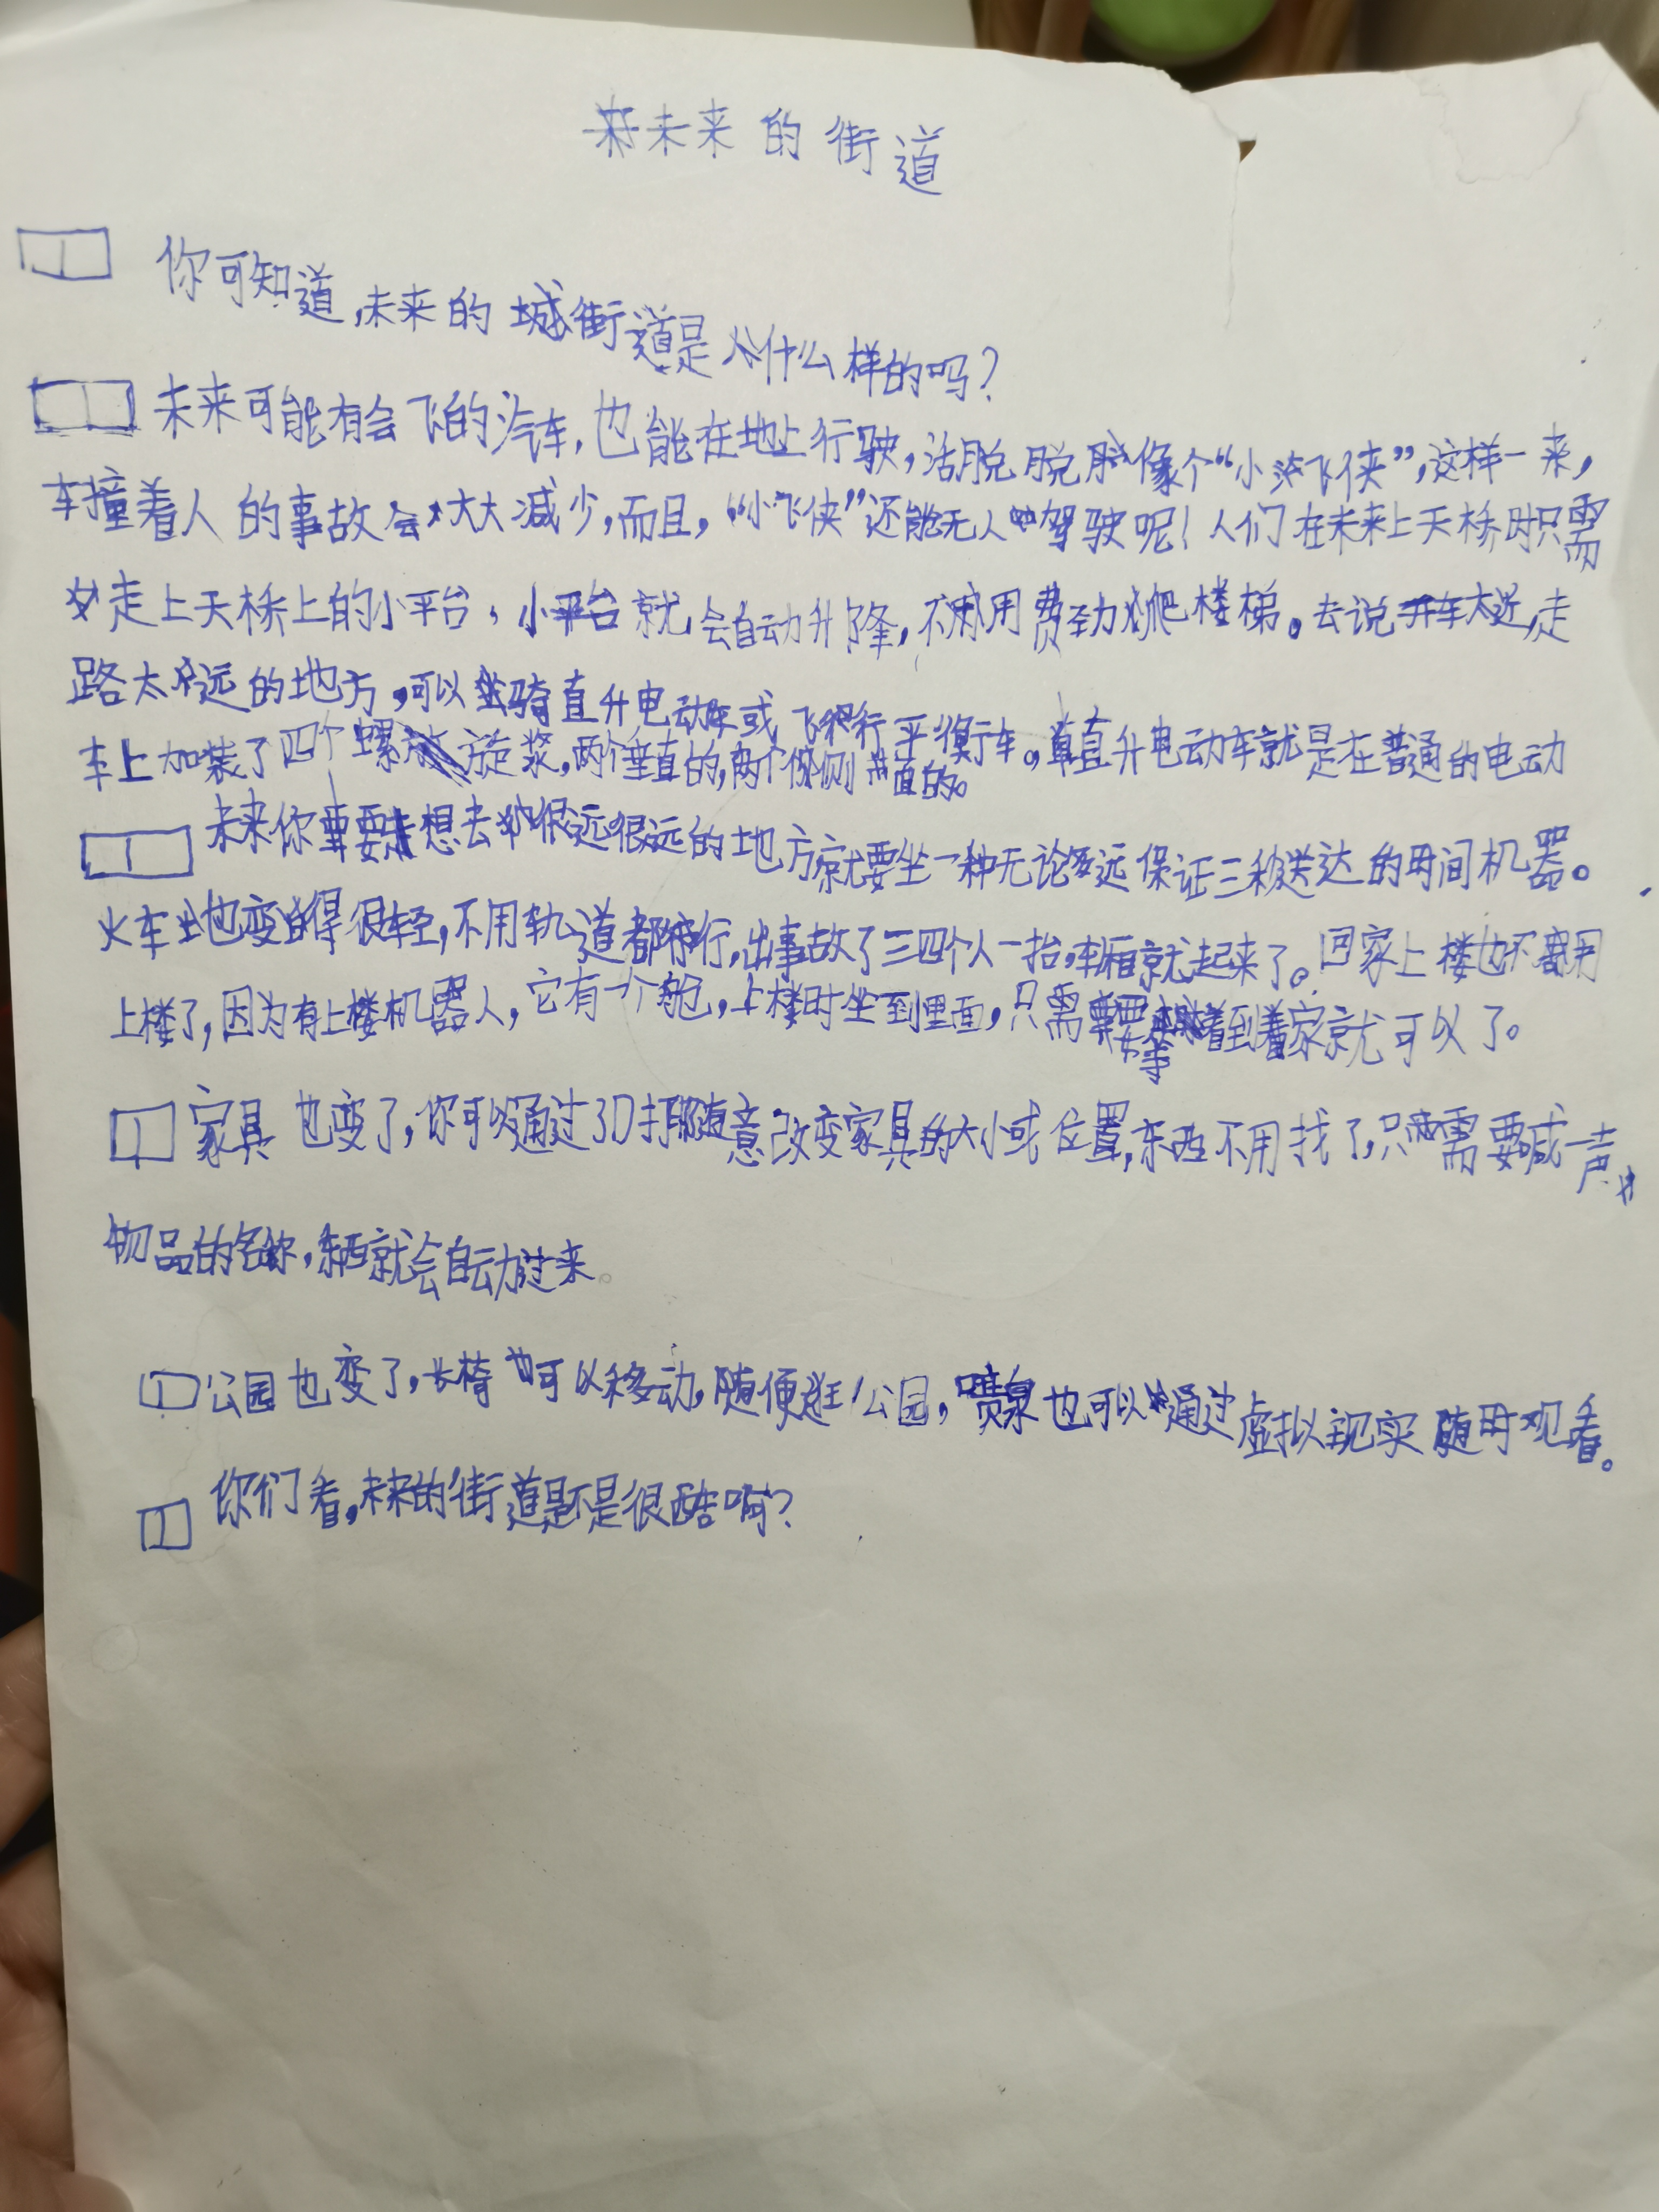 未来的街道
你可知道,未来的街道是什么样的吗?
未来可能有会飞的汽车,也能在地上行驶,活脱脱像个“小飞侠”,这样一来,
车撞着人的事故会大大减少,而且,“小飞侠”还能无人驾驶呢!人们在未来上天桥时只需
走上天桥上的小平台,小平台就会自动升降,不用费劲爬楼梯。去说开车太近,走
路太远的地方,可以骑直升电动车或飞行平衡车。直升电动车就是在普通的电动
车上加装了四个螺旋浆,两个垂直的,两个侧直的。
未来你要想去很远很远的地方就要坐一种无论多远保证三秒送达的时间机器。
火车也变得很轻,不用轨道都行,出事故了三四个人一抬,车厢就起来了。回家上楼也不用
上楼了,因为有上楼机器人,它有一个舱,上楼时坐到里面,只需要等着到家就可以了。
家具也变了,你可以通过3D打印随意改变家具的大小或位置,东西不用找了,只需要喊一声
物品的名称,东西就会自动过来。
公园也变了,长椅可以移动,随便逛公园,喷泉也可以通过虚拟现实随时观看。
你们看,未来的街道是不是很酷啊?